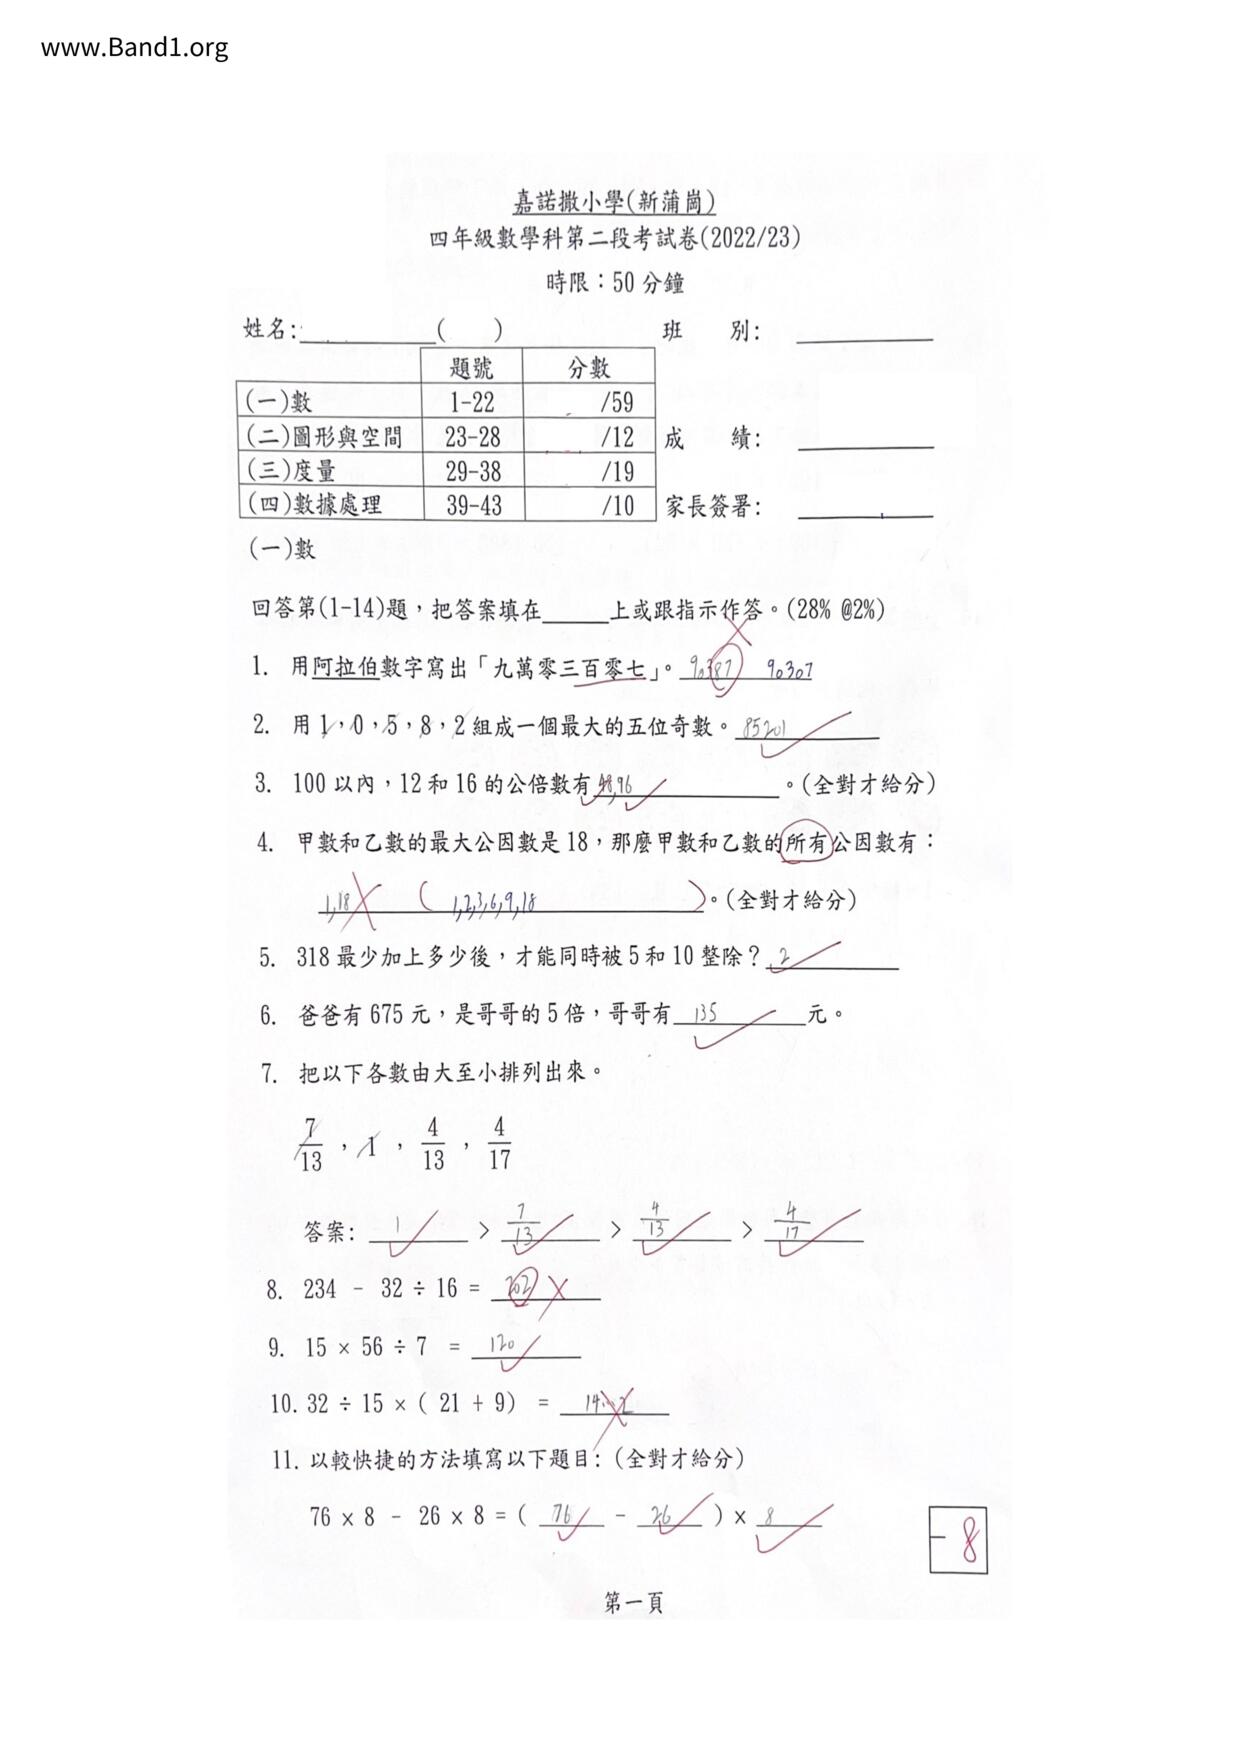 www.Band1.org
嘉諾撒小學(新蒲崗)
四年級數學科第二段考試卷(2022/23)
時限：50分鐘
姓名:          (    )    班 別:
題號 分數
(一)數 1-22 /59
(二)圖形與空間 23-28 /12 成 績:
(三)度量 29-38 /19
(四)數據處理 39-43 /10 家長簽署:
(一)數
回答第(1-14)題，把答案填在_____上或跟指示作答。(28% @2%)
1. 用阿拉伯數字寫出「九萬零三百零七」。 90387 90307
2. 用 1，0，5，8，2 組成一個最大的五位奇數。 85201
3. 100 以內，12 和 16 的公倍數有 48,96 。(全對才給分)
4. 甲數和乙數的最大公因數是 18，那麼甲數和乙數的所有公因數有：
1,18 ( 1,2,3,6,9,18 )。(全對才給分)
5. 318 最少加上多少後，才能同時被 5 和 10 整除？ 2
6. 爸爸有 675 元，是哥哥的 5 倍，哥哥有 135 元。
7. 把以下各數由大至小排列出來。
7/13 ，1 ，4/13 ，4/17
答案: 1 > 7/13 > 4/13 > 4/17
8. 234 - 32 ÷ 16 = 202
9. 15 × 56 ÷ 7 = 120
10. 32 ÷ 15 × ( 21 + 9) = 14...2
11. 以較快捷的方法填寫以下題目:(全對才給分)
76 × 8 - 26 × 8 = ( 76 - 26 ) × 8
-8
第一頁